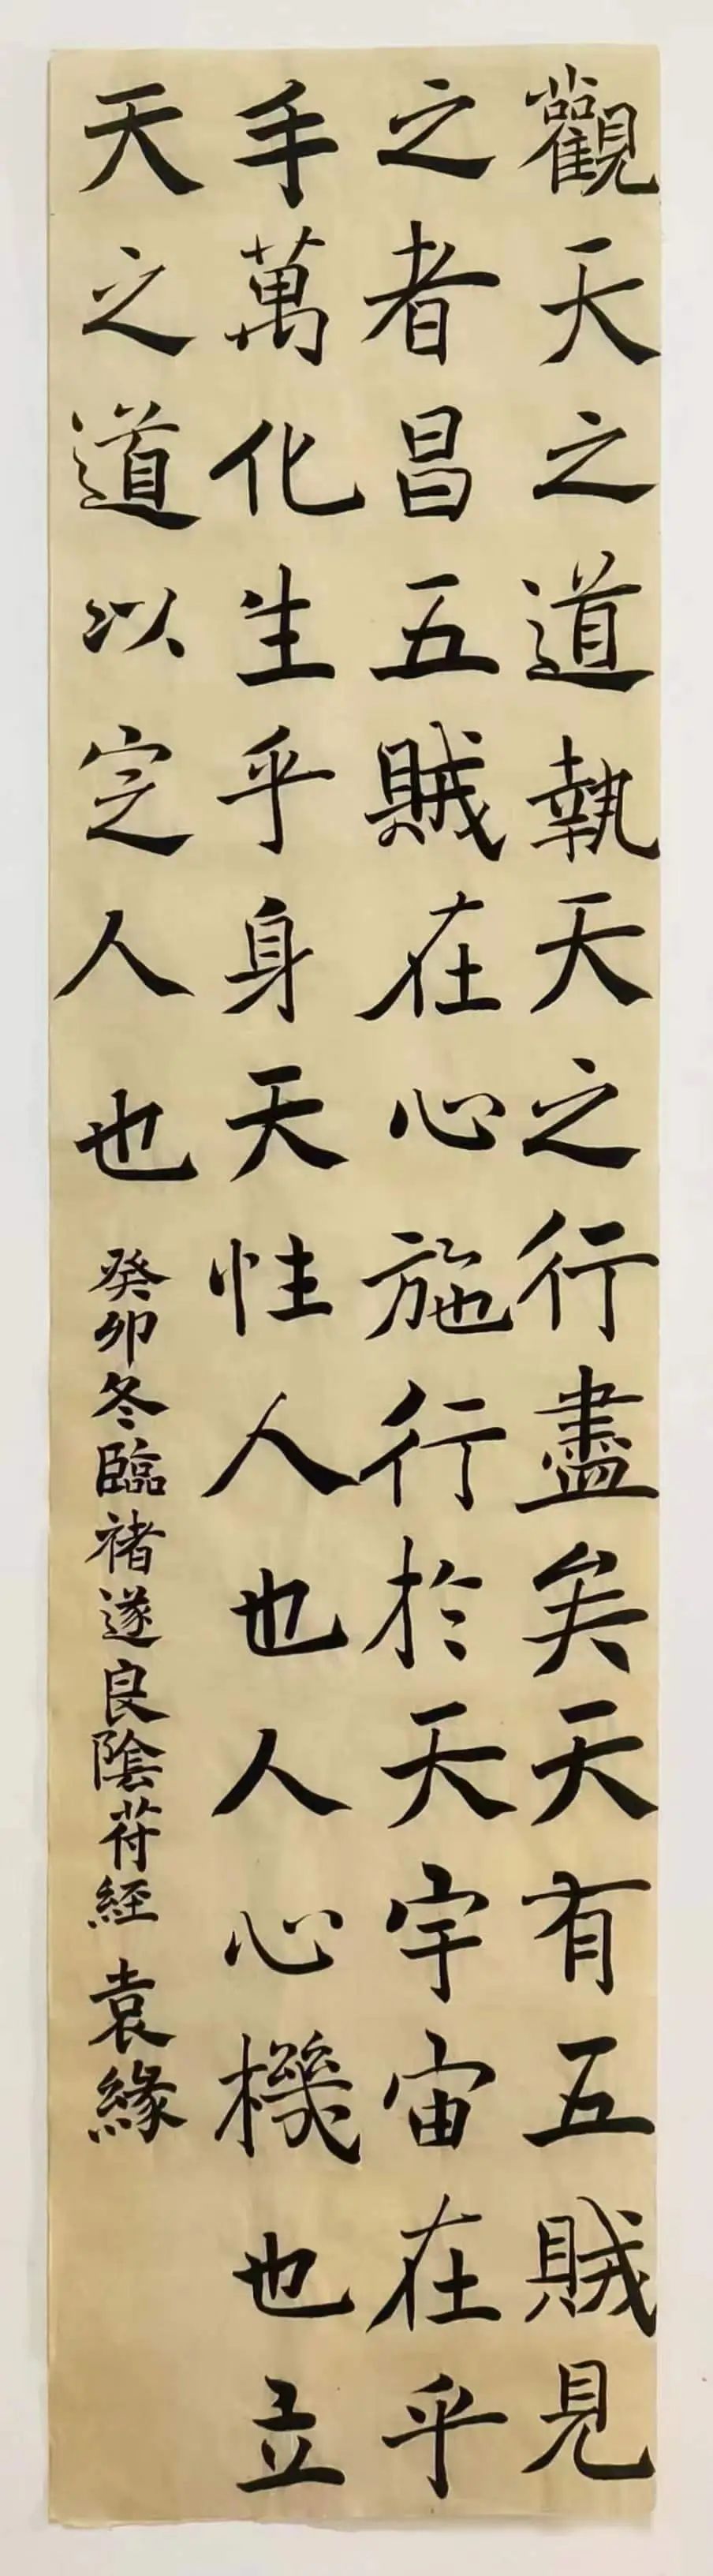 觀天之道執天之行盡矣天有五賊見
之者昌五賊在心施行於天宇宙在乎
手萬化生乎身天性人也人心機也立
天之道以定人也
癸卯冬臨褚遂良陰苻經 袁緣